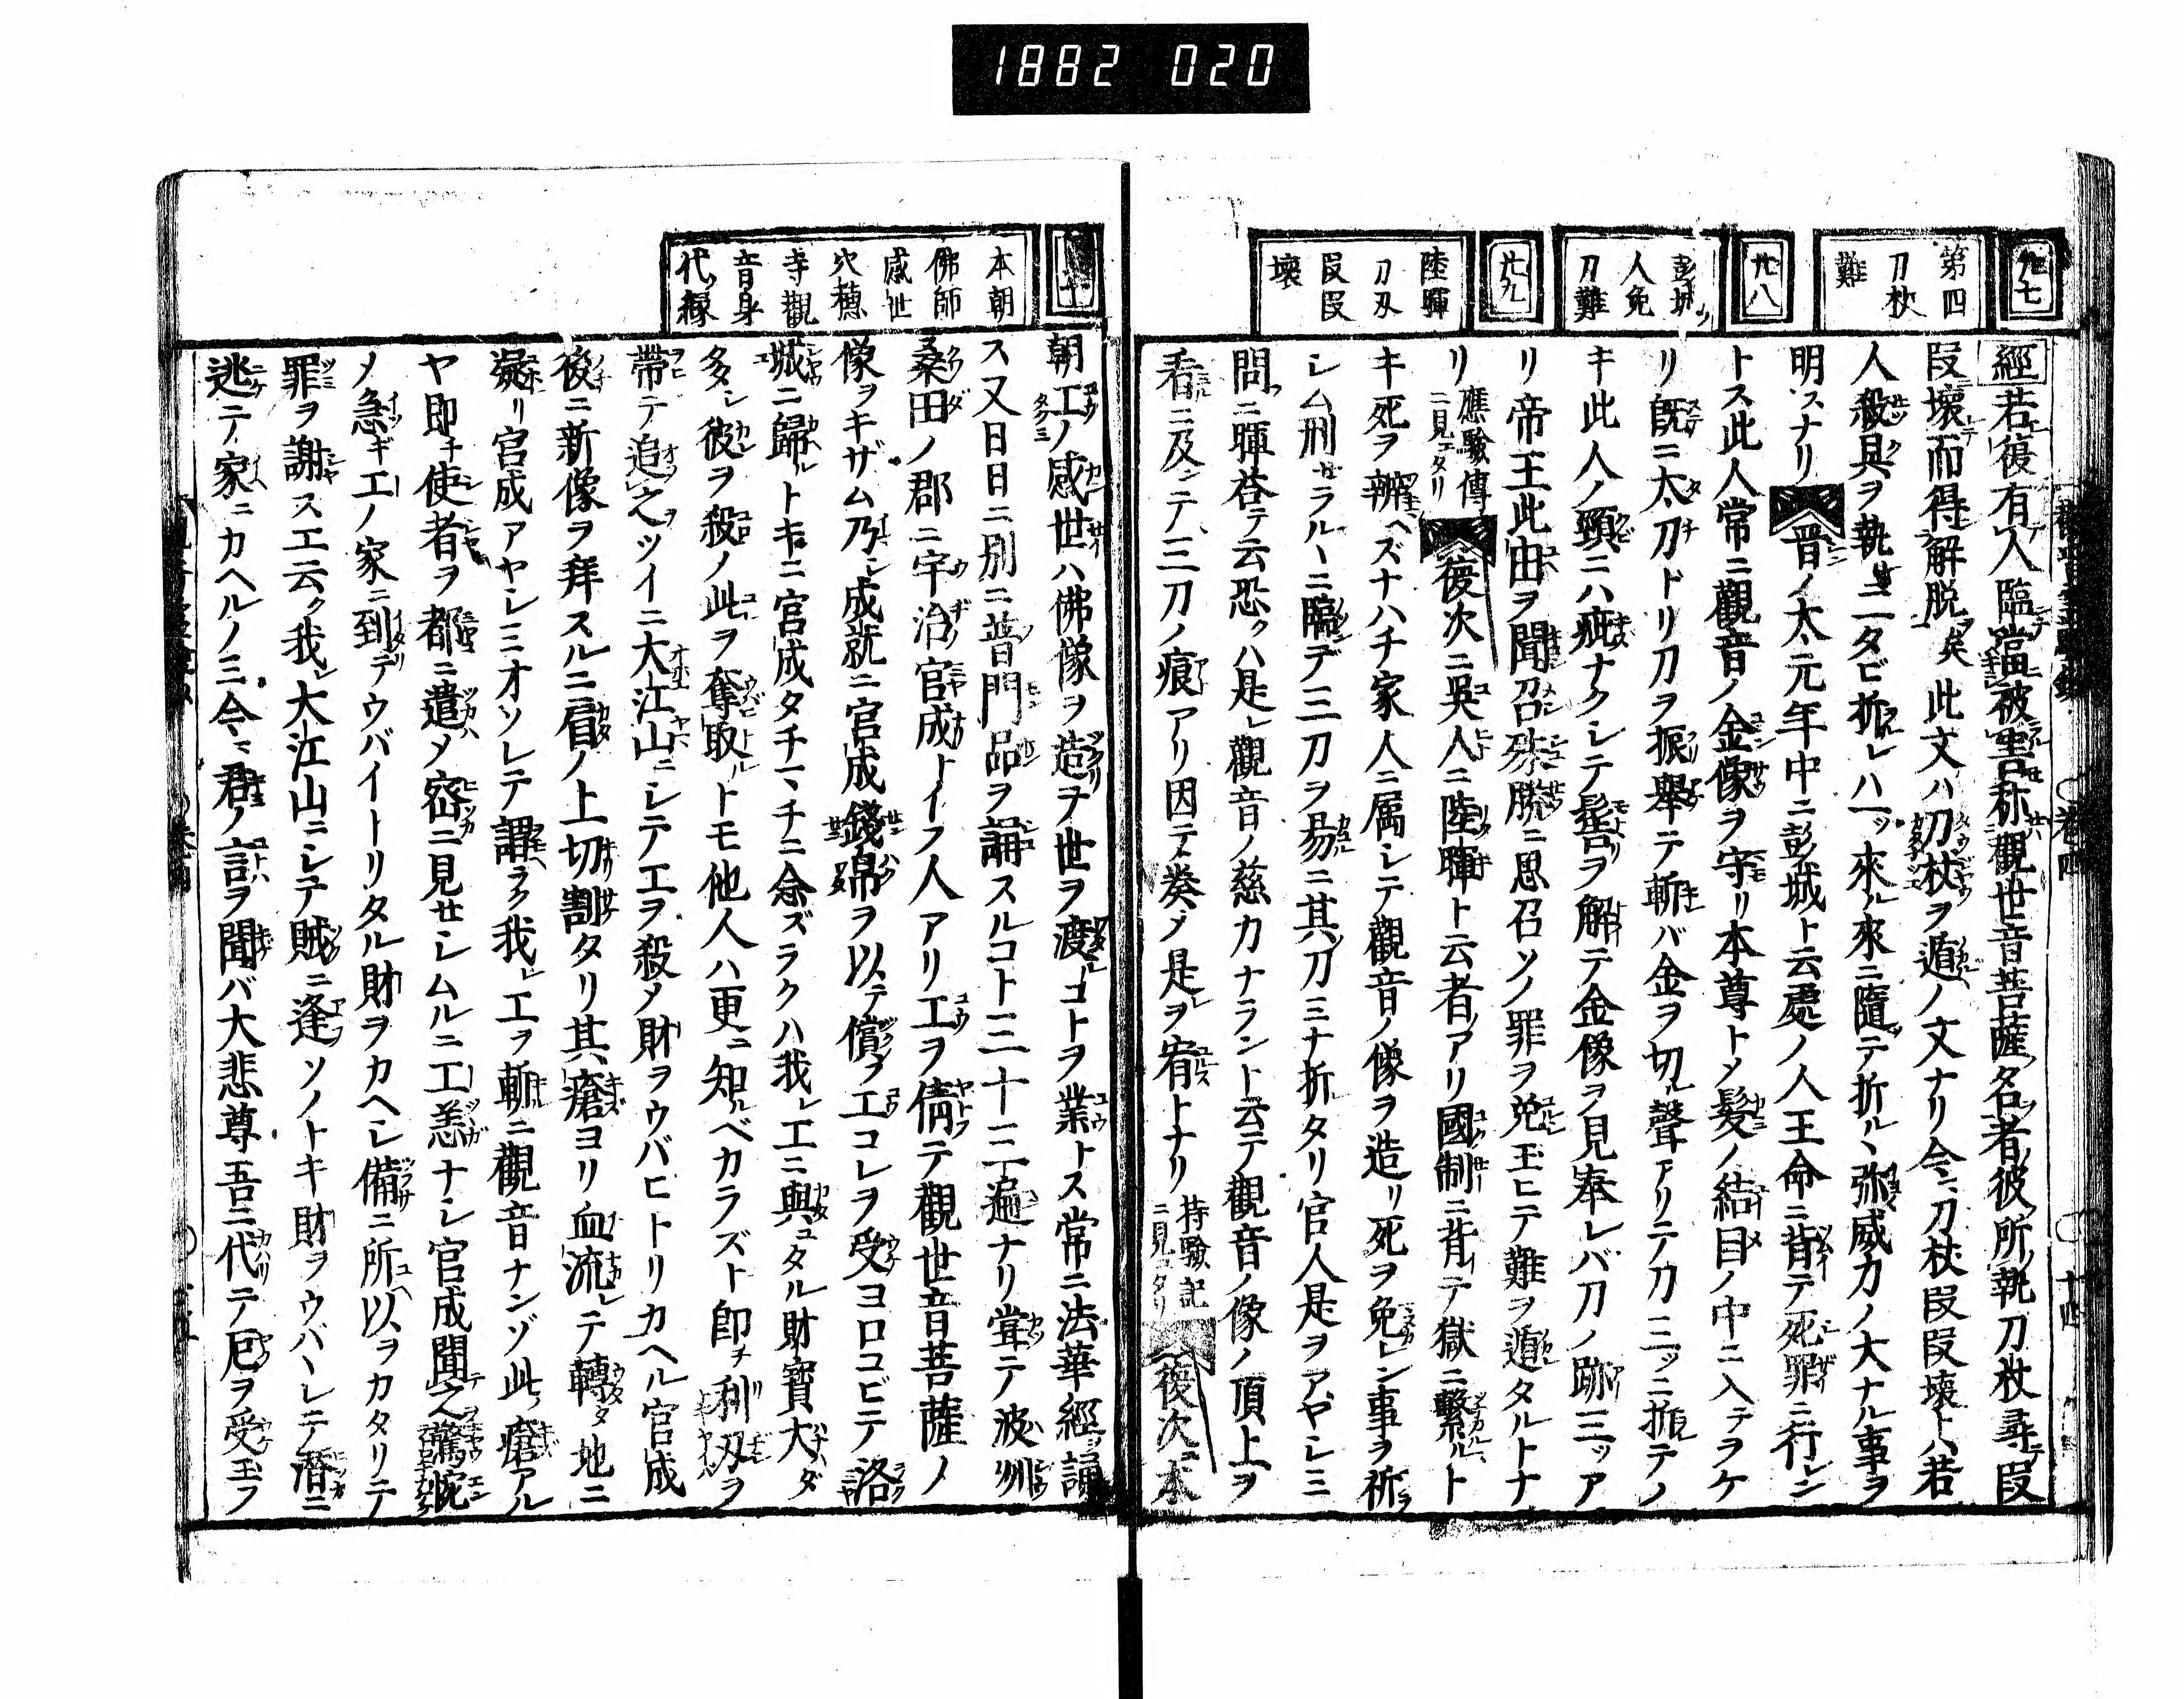 1882 020
廿七
第四
刀杖
難
廿八
彭城ノ
人免
刀難
廿九
陸暉
刀刃
段段
壞
經若復有人臨當被害称觀世音菩薩名者彼所執刀杖尋段
段壞而得解脱矣此文ハ刀杖ヲ遁ノ文ナリ今ニ刀杖段段壞トハ若
人殺具ヲ執ニ二タビ折レハ一ツ來ル來ニ隨テ折ル弥威力ノ大ナル事ヲ
明スナリ晋ノ太元年中ニ彭城ト云處ノ人王命ニ背テ死罪ニ行レン
トス此人常ニ觀音ノ金像ヲ守リ本尊トメ髮ノ結目ノ中ニ入テヲケ
リ既ニ太刀トリ刀ヲ振舉テ斬バ金ヲ切ル聲アリテ刀三ツニ折レテノ
キ此人ノ頸ニハ疵ナクシテ髻ヲ解テ金像ヲ見奉レバ刀ノ跡三ツア
リ帝王此由ヲ聞召殊勝ニ思召ソノ罪ヲ免玉ヒテ難ヲ遁タルトナ
リ
應驗傳
ニ見エタリ
復次ニ呉人ニ陸暉ト云者アリ國制ニ背テ獄ニ繫ルト
キ死ヲ辨ヘズナハチ家人ニ属シテ觀音ノ像ヲ造リ死ヲ免レン事ヲ祈
シム刑セラルヽニ臨デ三刀ヲ易ニ其刀ミナ折タリ官人是ヲアヤシミ
問ニ暉荅テ云恐クハ是レ觀音ノ慈力ナラント云テ觀音ノ像ノ頂上ヲ
看ニ及ンテ三刀ノ痕アリ因テ奏メ是ヲ宥トナリ
持驗記
ニ見エタリ
復次ニ本
本朝
佛師
感世
穴穂
寺觀
音身
代ノ縁
朝工ノ感世ハ佛像ヲ造テ世ヲ渡ルコトヲ業トス常ニ法華經ヲ誦
ス又日日ニ別ニ普門品ヲ誦スルコト三十三遍ナリ甞テ波州
桑田ノ郡ニ宇治ノ官成トイフ人アリ工ヲ倩テ觀世音菩薩ノ
像ヲキザム乃シ成就ニ官成錢帛ヲ以テ償フ工コレヲ受ヨロコビテ洛
城ニ歸ルトキニ官成タチマチニ念ズラクハ我レ工ニ與ユタル財寳大ダ
多シ彼ヲ殺ノ此ヲ奪取ルトモ他人ハ更ニ知ルベカラズト即チ利刃ヲ
帶テ追之ツイニ大江山ニシテ工ヲ殺メ財ヲウバヒトリカヘル官成
後ニ新像ヲ拜スルニ肩ノ上切割タリ其瘡ヨリ血流レテ轉タ地ニ
凝リ官成アヤシミオソレテ謂ラク我レ工ヲ斬ニ觀音ナンゾ此ノ瘡アル
ヤ即チ使者ヲ都ニ遣メ密ニ見セシムルニ工恙ナシ官成聞之驚惋
ノ急ギ工ノ家ニ到テウバイトリタル財ヲカヘシ備ニ所以ヲカタリテ
罪ヲ謝ス工云ク我レ大江山ニシテ賊ニ逢ソノトキ財ヲウバヽレテ潜ニ
逃テ家ニカヘルノミ今ニ君ノ言ヲ聞バ大悲尊吾ニ代テ厄ヲ受玉フ